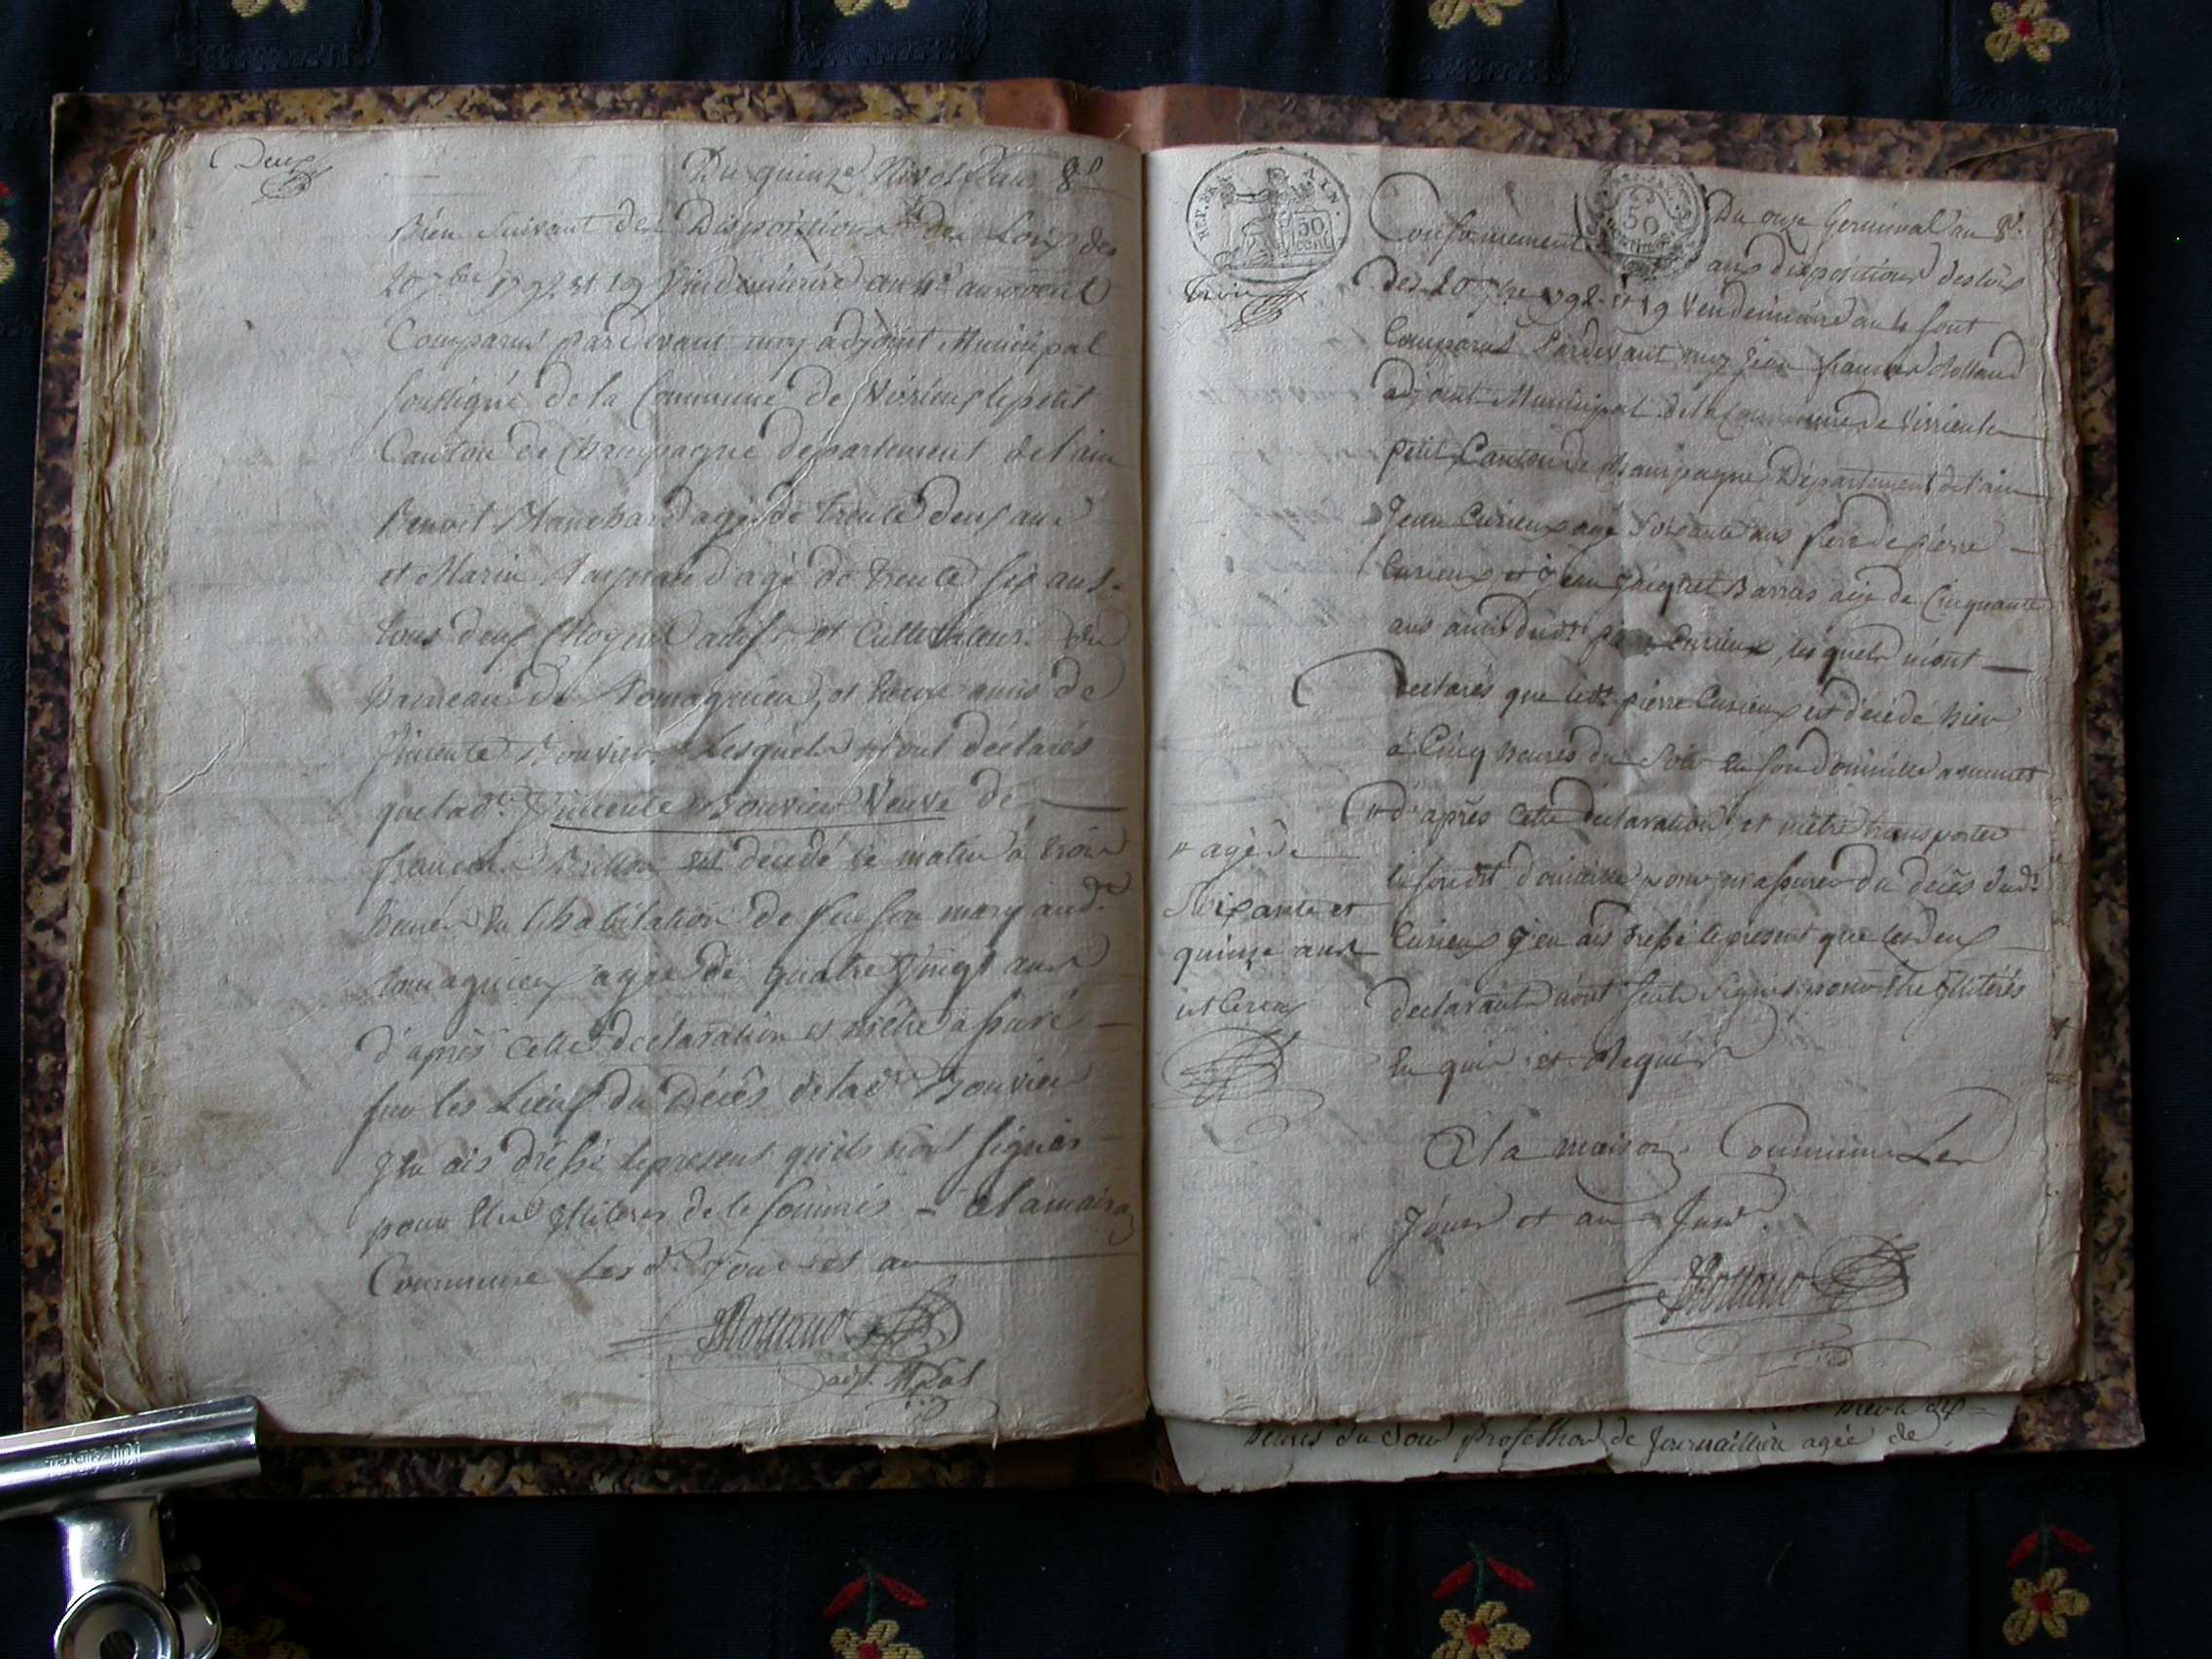 Deux
Du quinze Nivos d'an 8e
Bien suivant des Dispositions des Loix des
20 7bre 1792 et 19 Vendemiaire an 4e
Comparus pardevant moy adjoint Municipal
soussigné de la Commune de Virieux le petit
Canton de Champagne departement de l'ain
Benoit Blanchard agé de trente deux ans
et Marin agé de trente six ans
tous deux Citoyens actifs et Cultivateurs du
hameau de Romagnieu, et amis de
Bouvier Lesquels m'ont déclarés
que lade. Bouvier Veuve de
francois est decedé ce matin à trois
heures en l'habitation de feu son mary aud.
Romagnieux agée de quatre vingt ans
d'après cette déclaration et m'être assuré
sur les Lieux du Décès de lade Bouvier
J'en ais dressé le present qu'ils n'ont signés
pour être Illiteres de ce sommés - à la maison
Commune Les d. jour et an
JRolland
adjt. Mpal
REP. FRA. AIN.
50 cent
50
Du onze Germinal an 8e.
Conformement aux dispositions des loix
trois
Des 20 7bre 1792 et 19 Vendemiaire an 4 sont
Comparus Pardevant moy Jean francois Rolland
adjoint Municipal de la Commune de Virieu le
petit Canton de Champagne Département de l'ain
Jean Curieux agé soixante ans frere de pierre
Curieux et Jean Jacques Barras agé de Cinquante
ans amis dudt. pierre Curieux, lesquels m'ont
declarés que ledt. pierre Curieux est décédé hier
à Cinq heures du Soir en son domicille
d'après cette déclaration et m'être transporter
# agé de
en son dt domicille pour m'assurer du décès dudt
Soixante et
quinze ans
Curieux J'en ais dressé le present que les deux
declarants n'ont seut Signés pour être Illiterés
En qui et Requis
A la maison Commune Les
Jour et an Susd.
JRolland
heures du Soir profession de Journaillière agée de